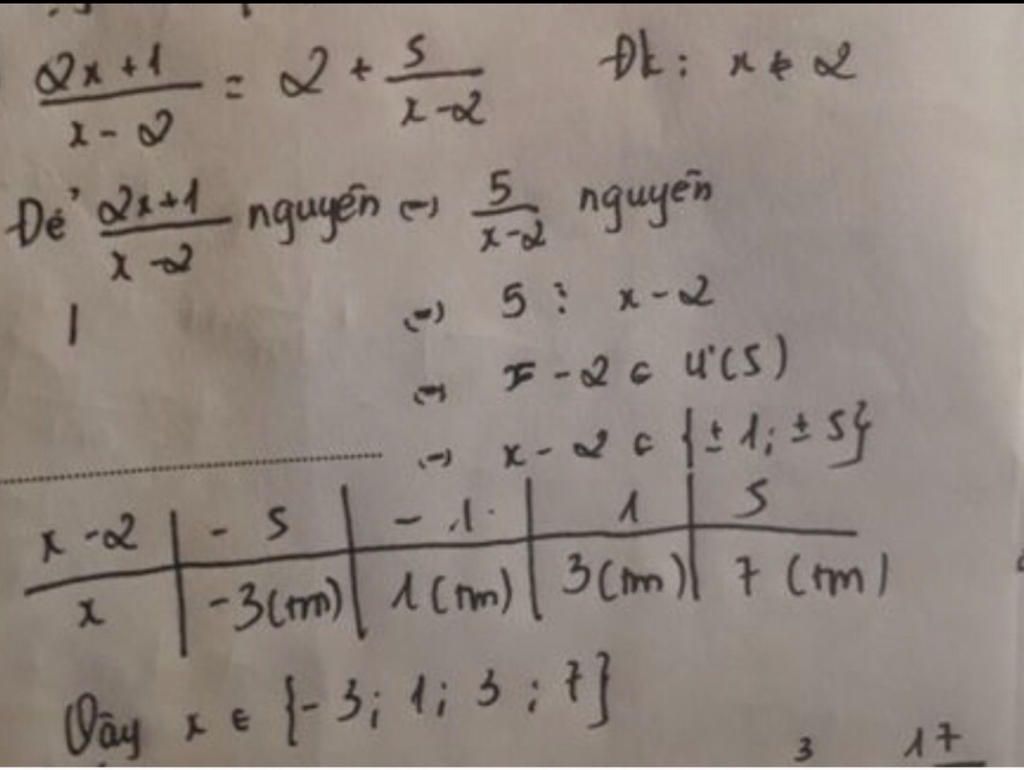 (2x+1)/(x-2) = 2 + 5/(x-2) Đk: x ≠ 2
Để (2x+1)/(x-2) nguyên (-) 5/(x-2) nguyên
(-) 5 ⋮ x-2
(-) x-2 ∈ Ư(5)
(-) x-2 ∈ {±1; ±5}
x-2 | -5 | -1 | 1 | 5
x | -3(tm) | 1(tm) | 3(tm) | 7 (tm)
Vậy x ∈ {-3; 1; 3; 7}
3 17